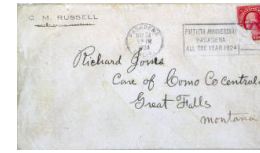 C. M. RUSSELL
PASADENA
1924
PASADENA
ALL THE YEAR 1924
Richard Jones
Care of Como Co central
Great Falls
montana